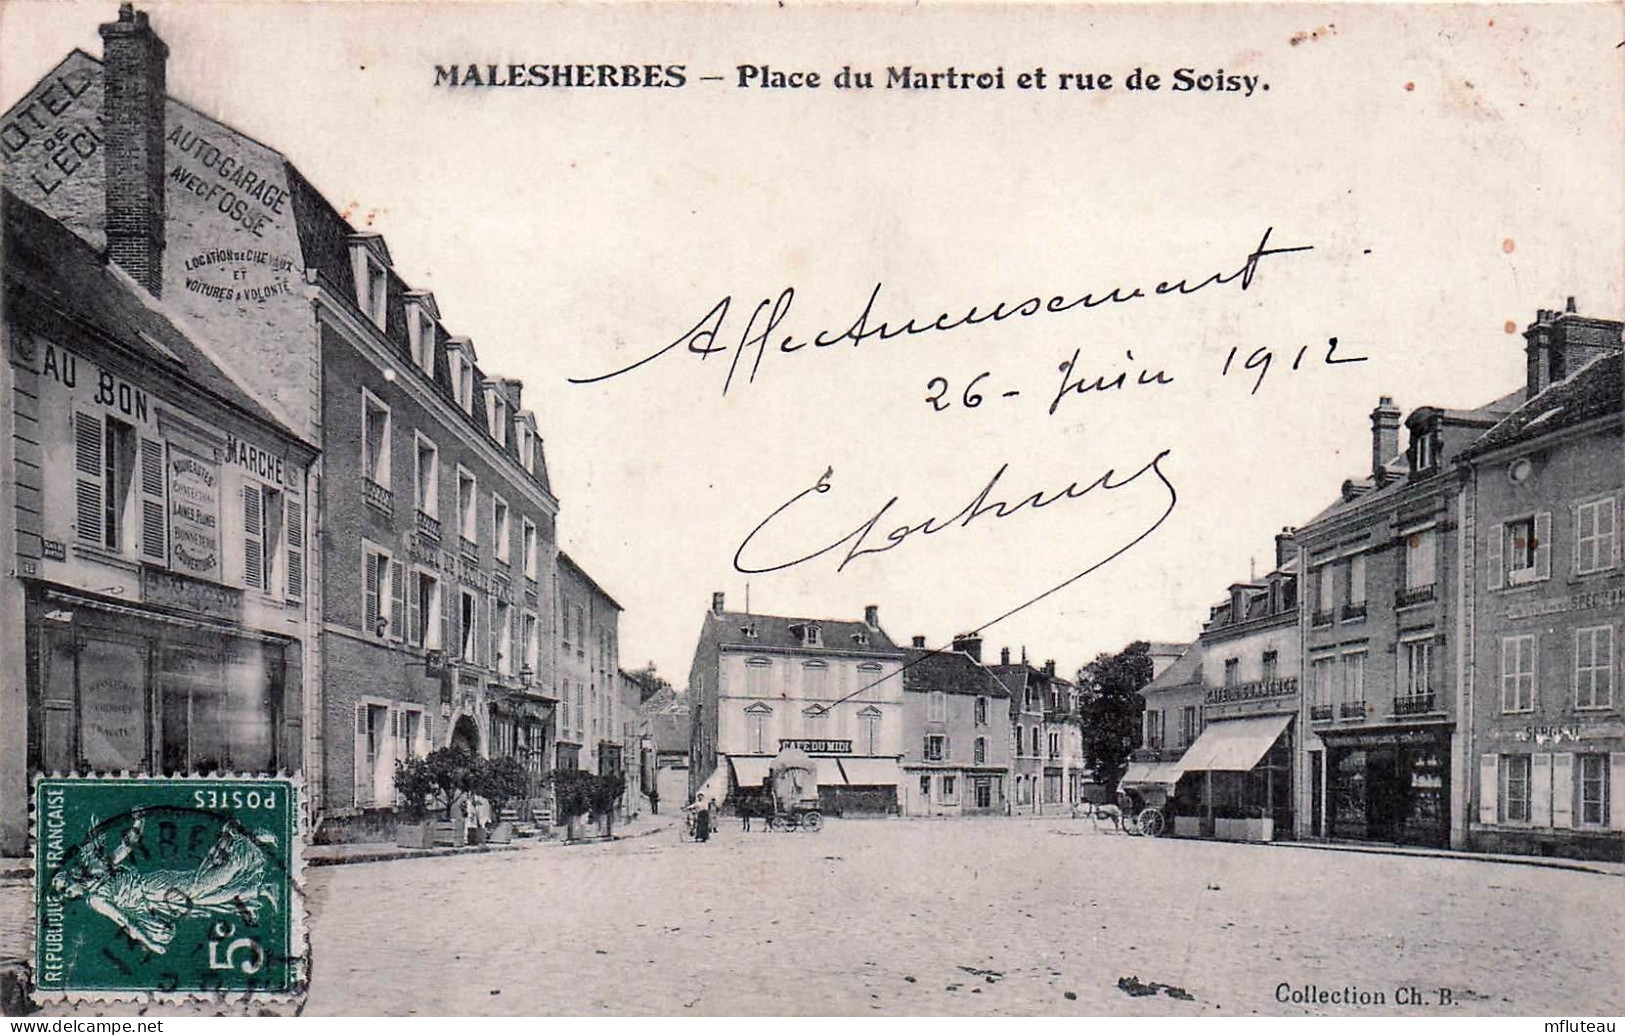 MALESHERBES — Place du Martroi et rue de Soisy.
HOTEL
DE
L'ECU
AUTO-GARAGE
AVEC FOSSE
LOCATION DE CHEVAUX
ET
VOITURES A VOLONTÉ
AU BON MARCHÉ
NOUVEAUTES
LAINES, PLUMES
BONNETERIE
COUVERTURES
Affectueusement
26 - Juin 1912
HOTEL DE L'ECU DE FRANCE
CAFÉ DU MIDI
CAFÉ DU COMMERCE
POSTES
REPUBLIQUE FRANÇAISE
5c
Collection Ch. B.
mfluteau